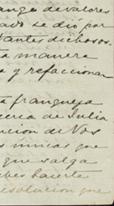 de valores
ado se dió por
tantes dichosos.
a manera
y refaccionar
a franqueja
cerca de Julia
ncion de Vos
s unicas que
que salga
debes hacerte
resolucion que